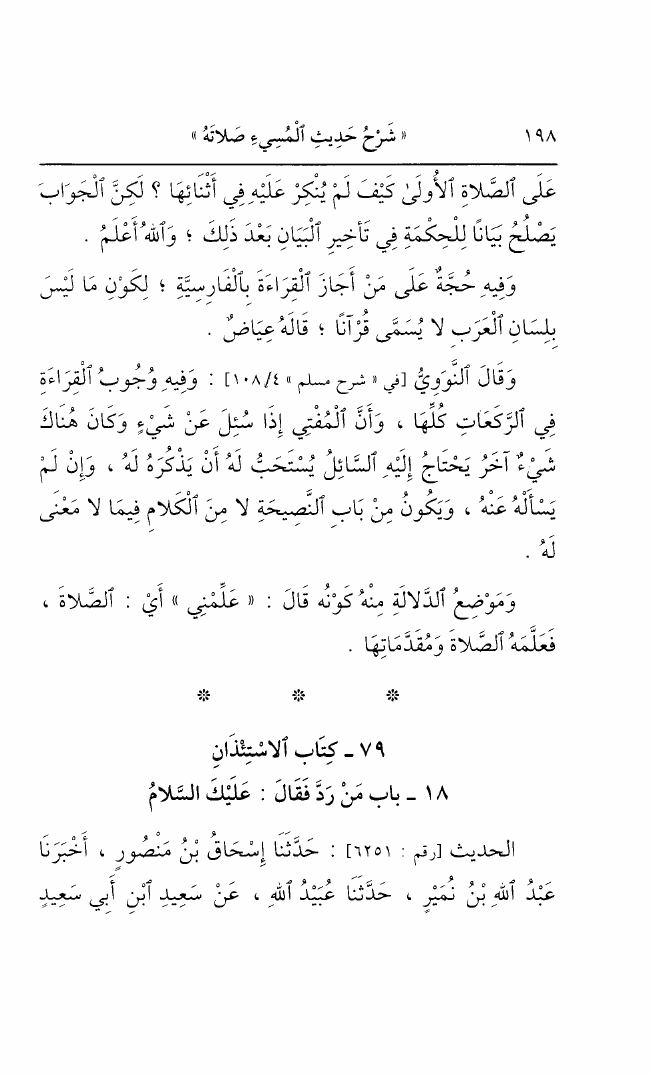 ١٩٨ « شَرْحُ حَدِيثِ ٱلْمُسِيءِ صَلاتَهُ »
عَلَى ٱلصَّلاةِ ٱلأُولَىٰ كَيْفَ لَمْ يُنْكِرْ عَلَيْهِ فِي أَثْنَائِهَا ؟ لَكِنَّ ٱلْجَوَابَ
يَصْلُحُ بَيَانًا لِلْحِكْمَةِ فِي تَأْخِيرِ ٱلْبَيَانِ بَعْدَ ذَلِكَ ؛ وَٱللهُ أَعْلَمُ .
وَفِيهِ حُجَّةٌ عَلَى مَنْ أَجَازَ ٱلْقِرَاءَةَ بِٱلْفَارِسِيَّةِ ؛ لِكَوْنِ مَا لَيْسَ
بِلِسَانِ ٱلْعَرَبِ لا يُسَمَّى قُرْآنًا ؛ قَالَهُ عِيَاضٌ .
وَقَالَ ٱلنَّوَوِيُّ [في « شرح مسلم » ١٠٨/٤] : وَفِيهِ وُجُوبُ ٱلْقِرَاءَةِ
فِي ٱلرَّكَعَاتِ كُلِّهَا ، وَأَنَّ ٱلْمُفْتِي إِذَا سُئِلَ عَنْ شَيْءٍ وَكَانَ هُنَاكَ
شَيْءٌ آخَرُ يَحْتَاجُ إِلَيْهِ ٱلسَّائِلُ يُسْتَحَبُّ لَهُ أَنْ يَذْكُرَهُ لَهُ ، وَإِنْ لَمْ
يَسْأَلْهُ عَنْهُ ، وَيَكُونُ مِنْ بَابِ ٱلنَّصِيحَةِ لا مِنَ ٱلْكَلامِ فِيمَا لا مَعْنَى
لَهُ .
وَمَوْضِعُ ٱلدَّلالَةِ مِنْهُ كَوْنُه قَالَ : « عَلِّمْنِي » أَيْ : ٱلصَّلاةَ ،
فَعَلَّمَهُ ٱلصَّلاةَ وَمُقَدَّمَاتِهَا .
* * *
٧٩ ـ كِتَاب ٱلاسْتِئْذَانِ
١٨ ـ باب مَنْ رَدَّ فَقَالَ : عَلَيْكَ السَّلامُ
الحديث [رقم : ٦٢٥١] : حَدَّثَنَا إِسْحَاقُ بْنُ مَنْصُورٍ ، أَخْبَرَنَا
عَبْدُ ٱللهِ بْنُ نُمَيْرٍ ، حَدَّثَنَا عُبَيْدُ ٱللهِ ، عَنْ سَعِيدِ ٱبْنِ أَبِي سَعِيدٍ